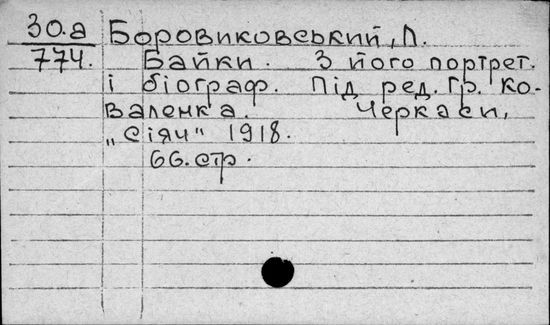 30.а Боровиковський, Л.
774. Байки. З його портрет.
і біограф. Під ред. Гр. Ко-
валенка. Черкаси,
„Сіяч" 1918.
66.стр.